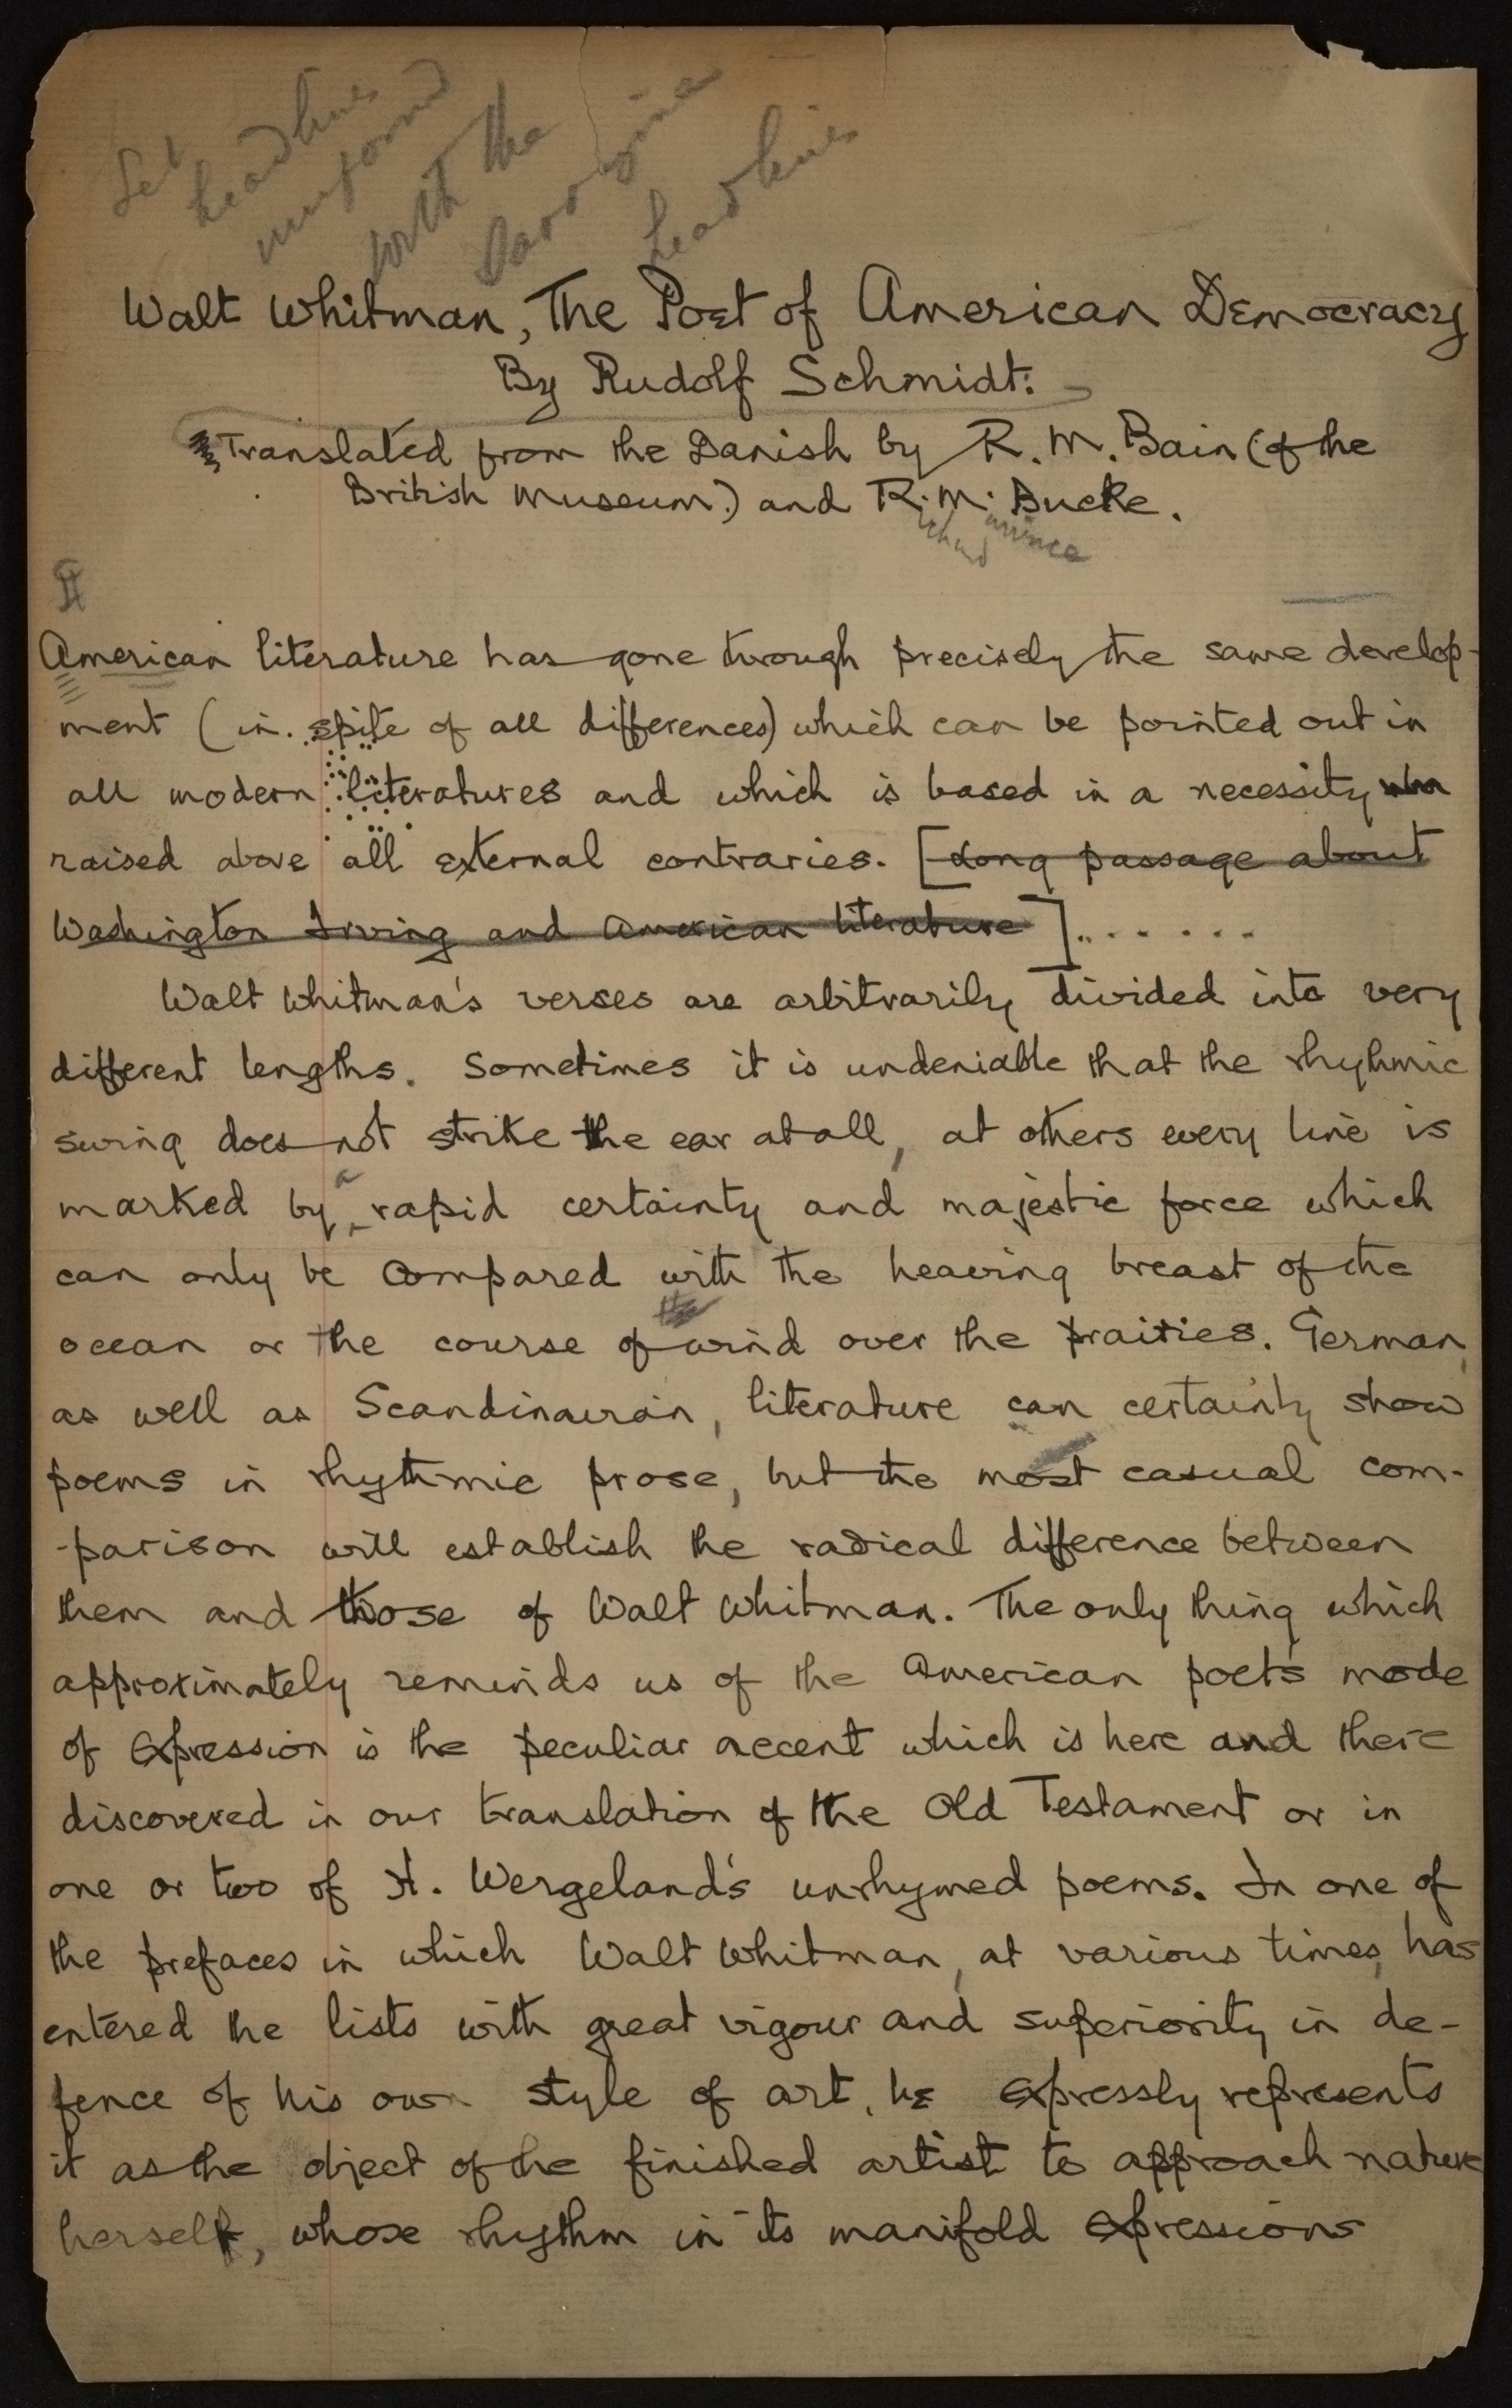 Set
headlines
uniform
with the
Sarrazine
headlines
Walt Whitman, The Poet of American Democracy
By Rudolf Schmidt:
Translated from the Danish by R. M. Bain (of the
British Museum.) and R. M. Bucke.
ichard aurice
American literature has gone through precisely the same develop-
ment (in spite of all differences) which can be pointed out in
all modern literatures and which is based in a necessity
raised above all external contraries. [Long passage about
Washington Irving and American literature].......
Walt Whitman's verses are arbitrarily divided into very
different lengths. Sometimes it is undeniable that the rhyhmic
swing does not strike the ear at all, at others every line is
marked by a rapid certainty and majestic force which
can only be compared with the heaving breast of the
ocean or the course of the wind over the prairies. German,
as well as Scandinavian, literature can certainly show
poems in rhythmic prose, but the most casual com-
-parison will establish the radical difference between
them and those of Walt Whitman. The only thing which
approximately reminds us of the American poet's mode
of expression is the peculiar accent which is here and there
discovered in our translation of the Old Testament or in
one or two of H. Wergeland's unrhymed poems. In one of
the prefaces in which Walt Whitman, at various times, has
entered the lists with great vigour and superiority in de-
fence of his own style of art, he expressly represents
it as the object of the finished artist to approach nature
herself, whose rhythm in its manifold expressions